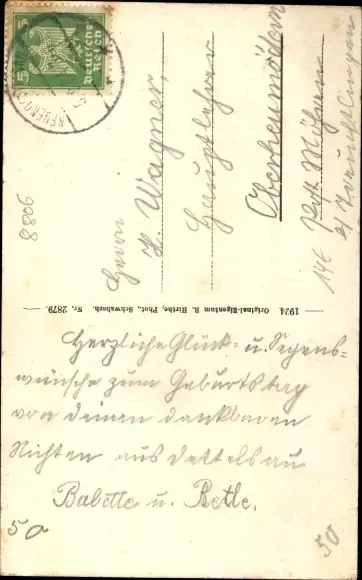 5 5
Deutsches
Reich
NEUENDETT
Herrn
H. Wagner,
Hauptlehrer
Oberheumödern
Post Möhren
b/ Treuchtlingen
14E
8806
— 1924 Original-Eigentum R. Hirthe, Phot., Schwabach. Nr. 2879. —
Herzliche Glück- u. Segens-
wünsche zum Geburtstag
von deinen dankbaren
Nichten aus Dettelsau
Babette u. Retle.
50
50